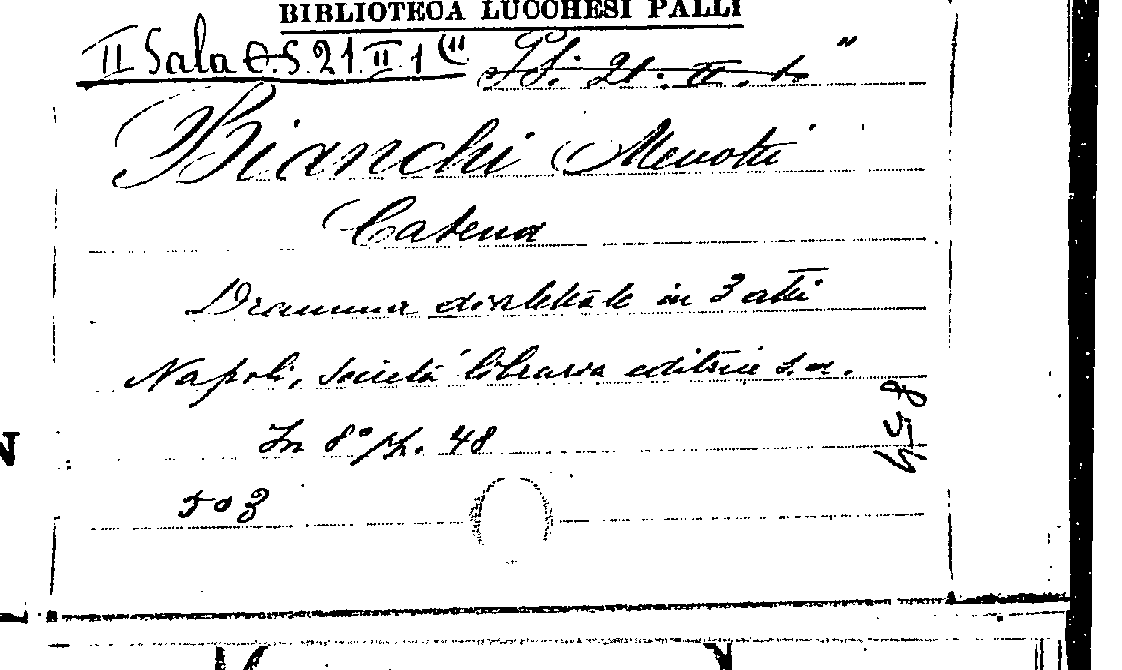 BIBLIOTECA LUCCHESI PALLI
II Sala S.S. 21 II 1
S.S. 21. II. 1.
Bianchi Menotti
Catena
Dramma dialettale in 3 atti
Napoli, Società libraria editrice s.a.
In 8° pp. 48
503